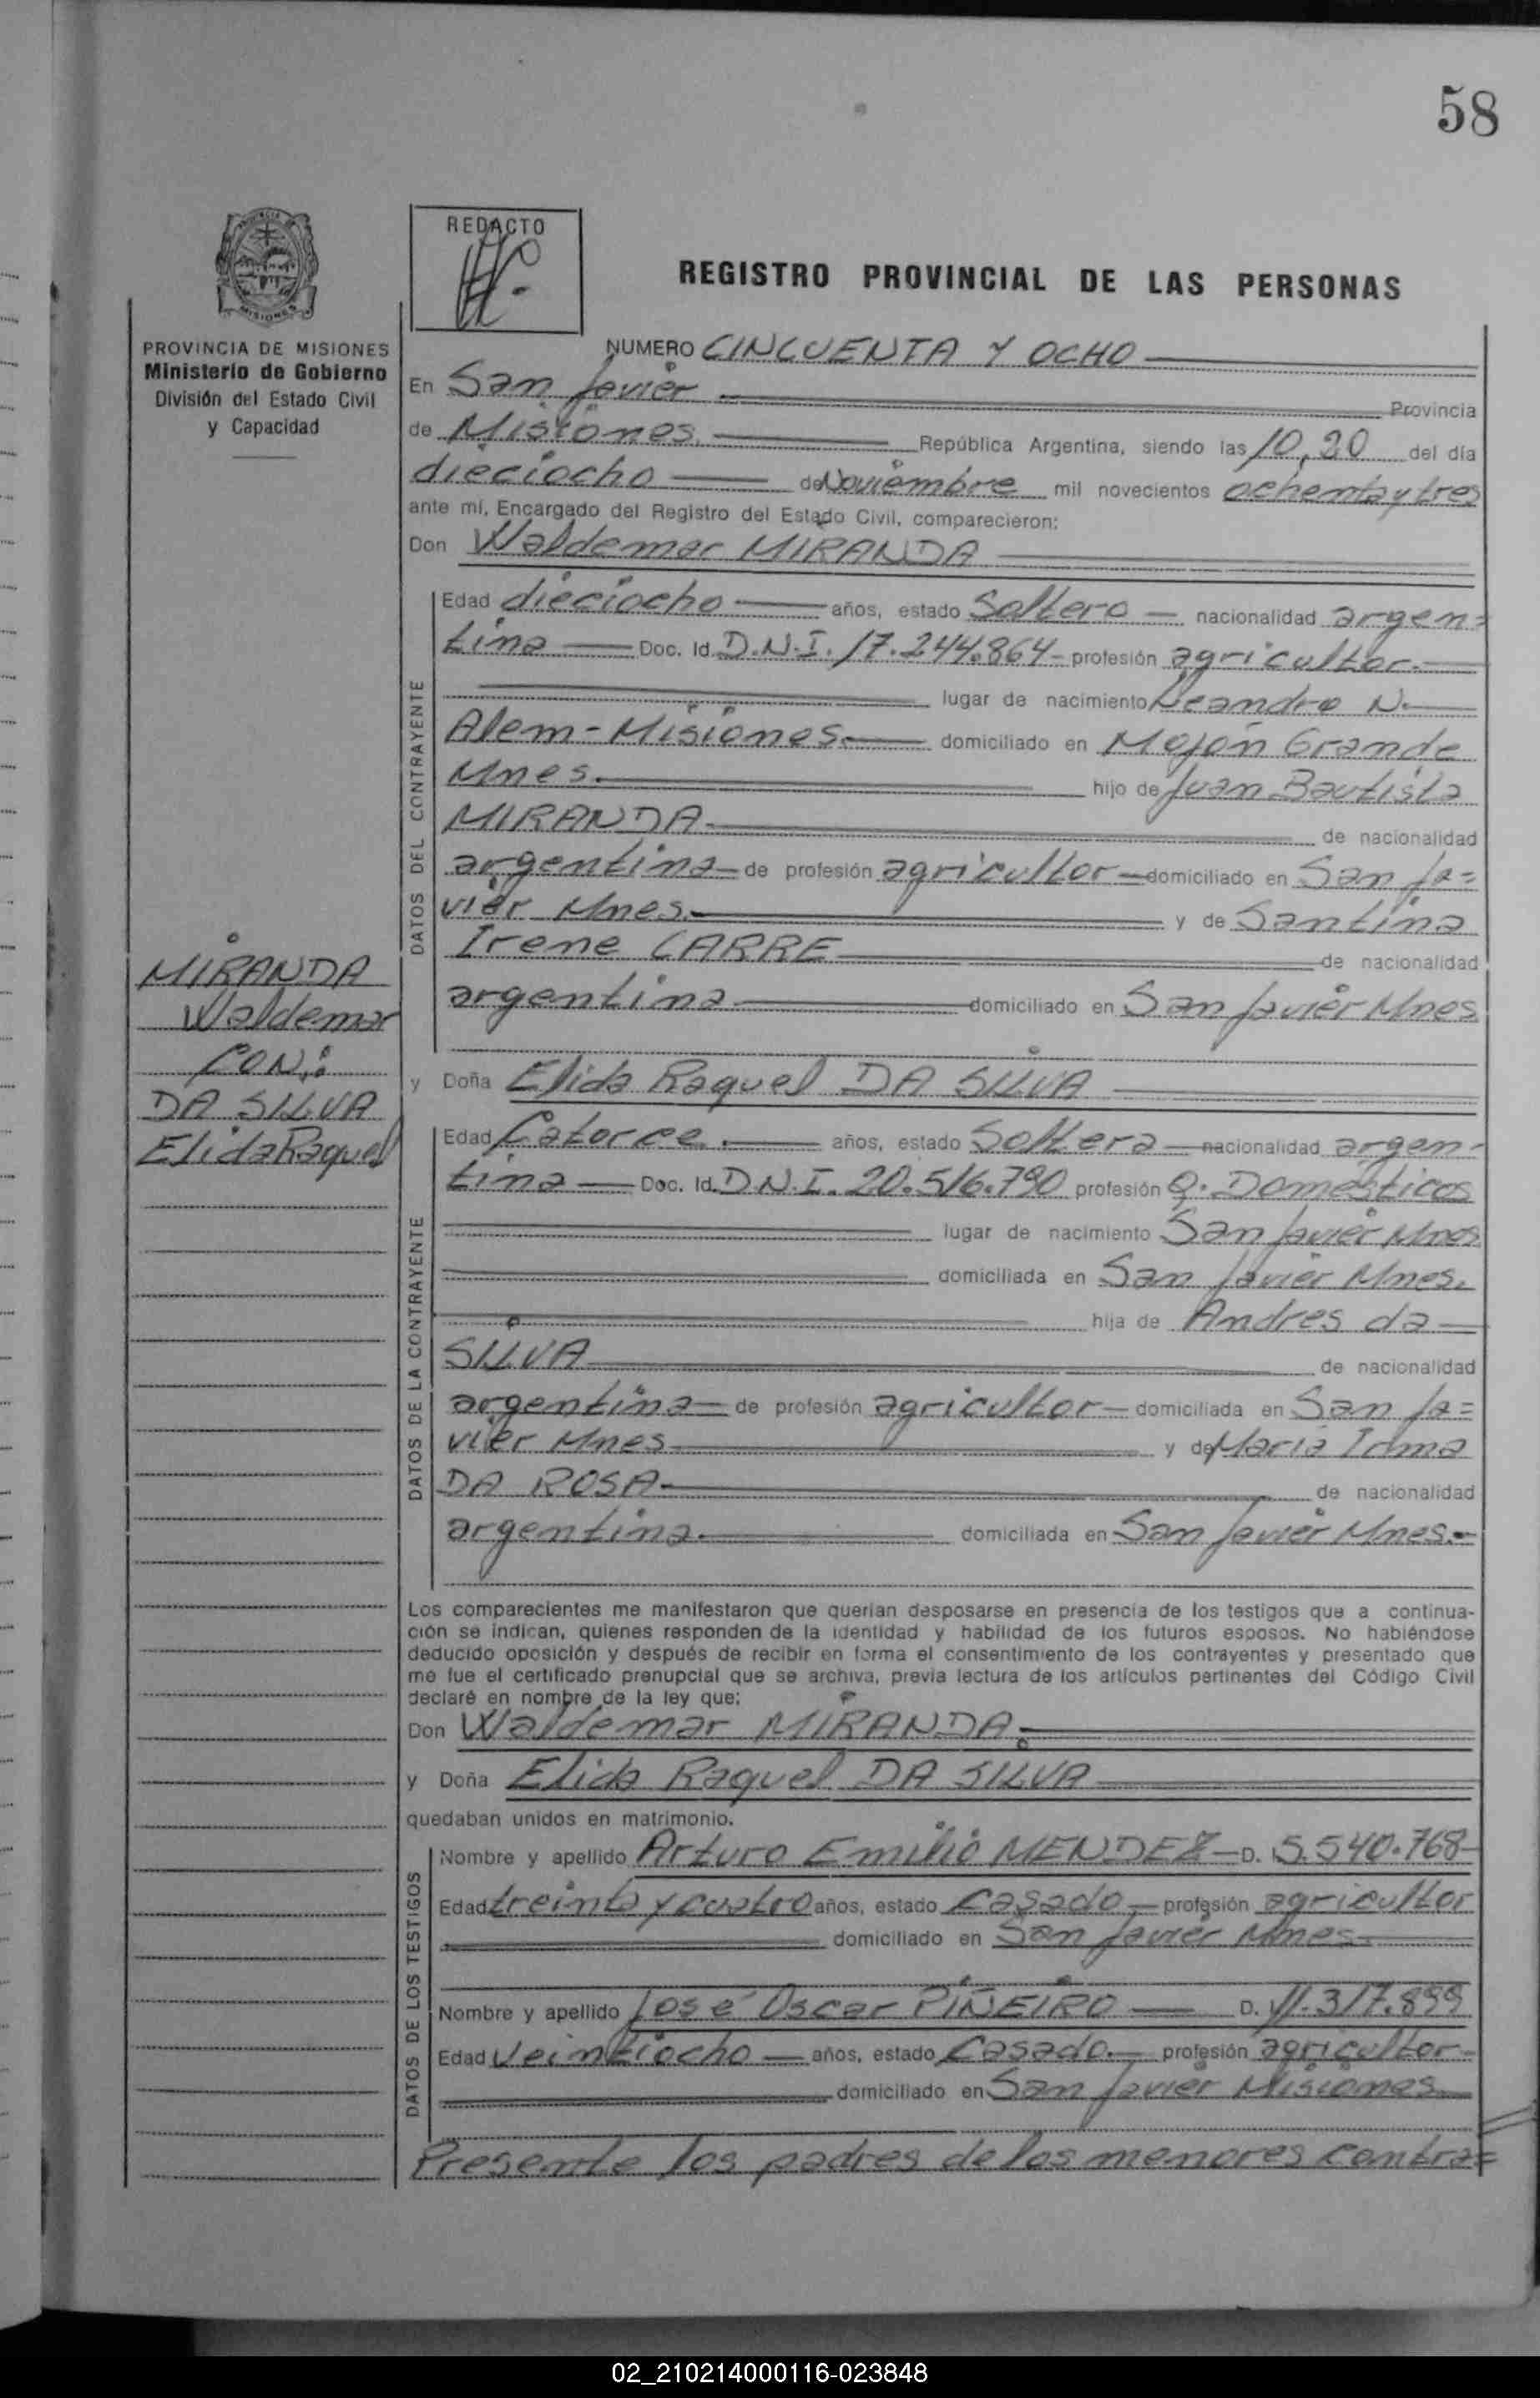 58
REDACTO
REGISTRO PROVINCIAL DE LAS PERSONAS
PROVINCIA DE MISIONES
Ministerio de Gobierno
División del Estado Civil
y Capacidad
NUMERO CINCUENTA Y OCHO
En San Javier Provincia
de Misiones. República Argentina, siendo las 10,20 del día
dieciocho de Noviembre mil novecientos ochenta y tres
ante mí, Encargado del Registro del Estado Civil, comparecieron:
Don Waldemar MIRANDA
DATOS DEL CONTRAYENTE
Edad dieciocho años, estado Soltero nacionalidad argen=
tina Doc. Id. D.N.I. 17.244.864- profesión agricultor.
lugar de nacimiento Leandro N.
Alem-Misiones. domiciliado en Mojón Grande
Mnes. hijo de Juan Bautista
MIRANDA de nacionalidad
argentina de profesión agricultor domiciliado en San Ja=
vier Mnes. y de Santina
Irene CARRE de nacionalidad
argentina domiciliado en San Javier Mnes
MIRANDA
Waldemar
CON:
DA SILVA
Elida Raquel
y Doña Elida Raquel DA SILVA
DATOS DE LA CONTRAYENTE
Edad Catorce. años, estado Soltera nacionalidad argen-
tina Doc. Id. D.N.I. 20.516.790 profesión Q. Domésticos
lugar de nacimiento San Javier Mnes
domiciliada en San Javier Mnes.
hija de Andres da
SILVA de nacionalidad
argentina de profesión agricultor domiciliada en San Ja=
vier Mnes y de Maria Irma
DA ROSA de nacionalidad
argentina. domiciliada en San Javier Mnes.-
Los comparecientes me manifestaron que querían desposarse en presencia de los testigos que a continua-
ción se indican, quienes responden de la identidad y habilidad de los futuros esposos. No habiéndose
deducido oposición y después de recibir en forma el consentimiento de los contrayentes y presentado que
me fue el certificado prenupcial que se archiva, previa lectura de los artículos pertinentes del Código Civil
declaré en nombre de la ley que:
Don Waldemar MIRANDA
y Doña Elida Raquel DA SILVA
quedaban unidos en matrimonio.
DATOS DE LOS TESTIGOS
Nombre y apellido Arturo Emilio MENDEZ D. I. 5.540.768
Edad treinta y cuatro años, estado Casado profesión agricultor
domiciliado en San Javier Mnes.
Nombre y apellido José Oscar PIÑEIRO D. I. 11.317.899
Edad Veintiocho años, estado Casado. profesión agricultor
domiciliado en San Javier Misiones
Presente los padres de los menores contra=
02_210214000116-023848